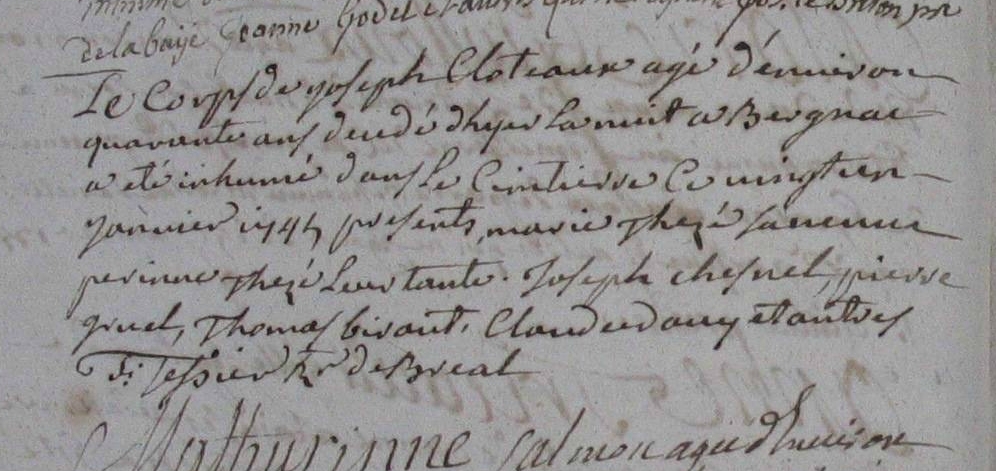 delabaÿe Jeanne Godel et autres
Le Corps de joseph Cloteaux agé d'enuiron
quarante ans decedé d'hyer la nuit a Bregnac
a eté inhumé dans Le Cimtierre Ce uingt un
januier 1745 presents, marie Thezé sa uenue
perinne Thezé leur tante. Joseph chesnel, pierre
gruel, Thomas birant. Claude dauy et autres
f: Tessier Rr de Breal
Mathurinne Salmon agee d'enuiron